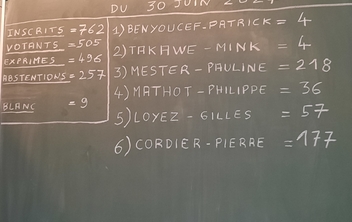 DU 30 JUIN 2024
INSCRITS = 762
VOTANTS = 505
EXPRIMES = 496
ABSTENTIONS = 257
BLANC = 9
1) BENYOUCEF - PATRICK = 4
2) TAKAWE - MINK = 4
3) MESTER - PAULINE = 218
4) MATHOT - PHILIPPE = 36
5) LOYEZ - GILLES = 57
6) CORDIER - PIERRE = 177